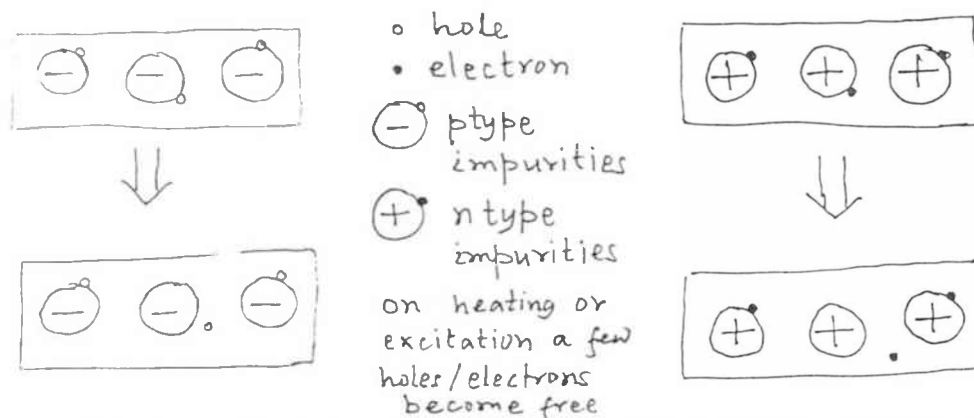 ○ hole
• electron
ptype
impurities
n type
impurities
on heating or
excitation a few
holes/electrons
become free